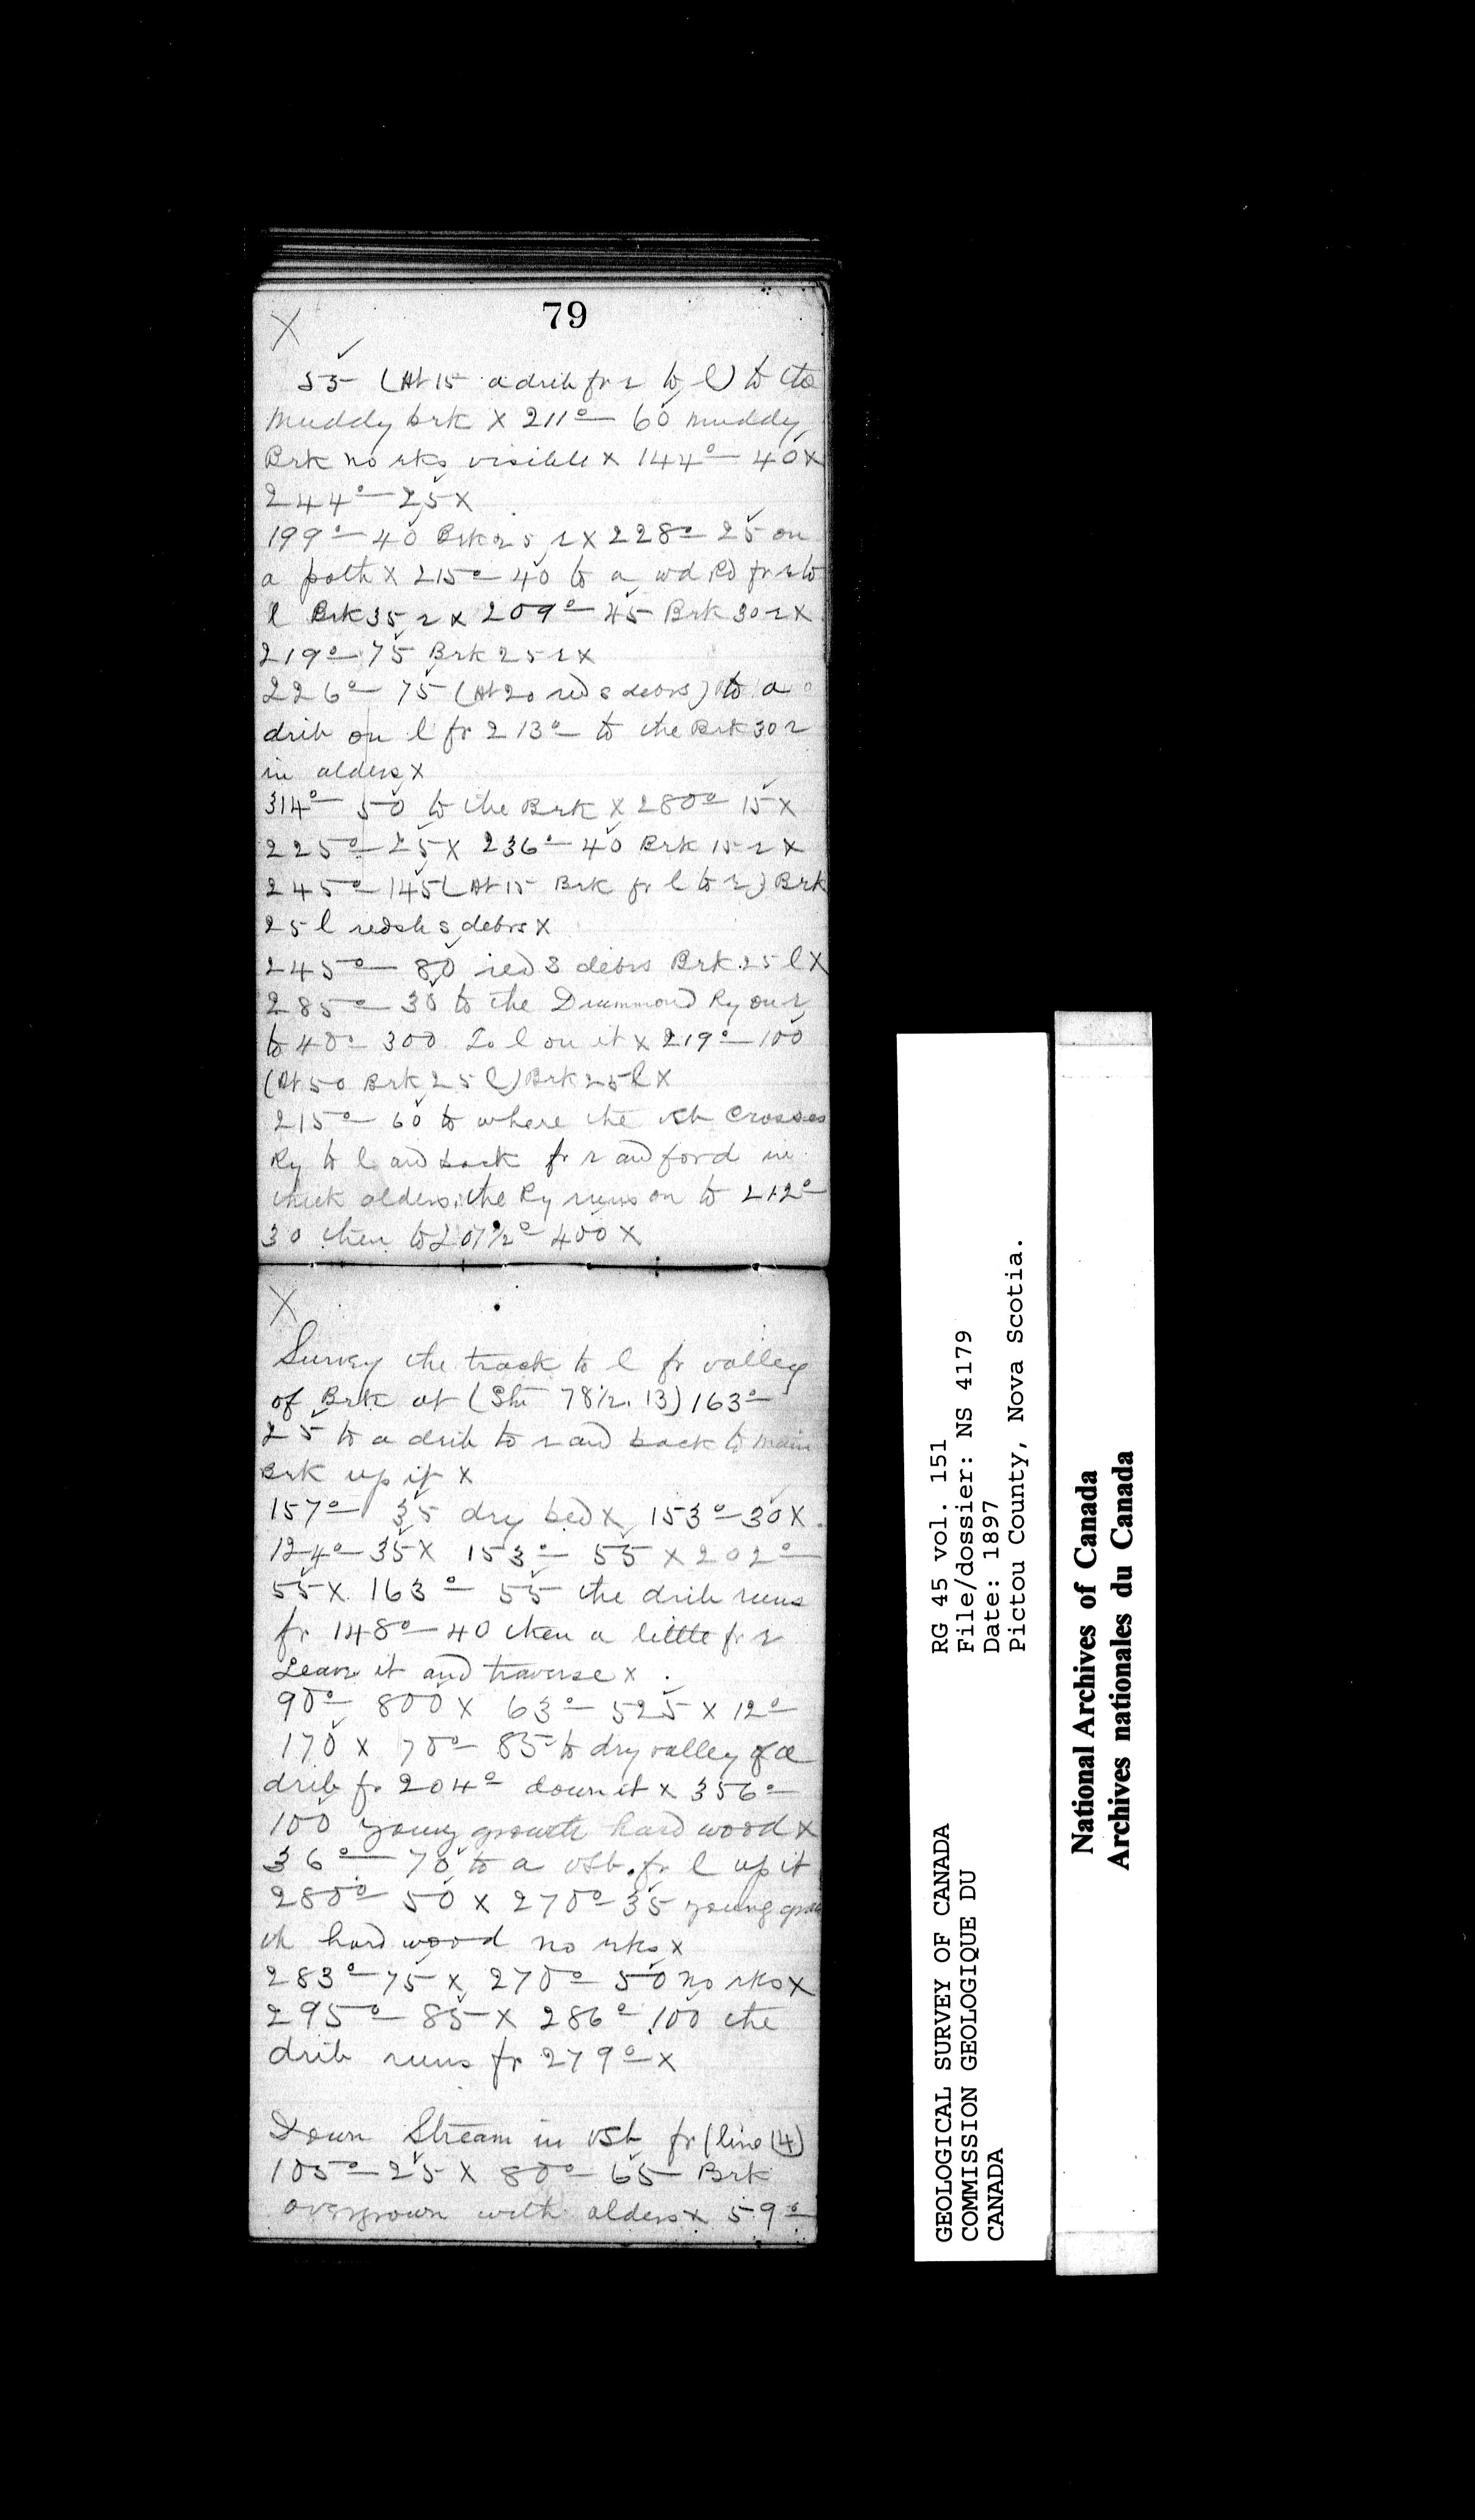 79
X
55 (At 15 a drib fr r to l) to the
Muddy brk X 211° — 60 muddy
Brk no rks visible X 144° — 40 X
244° — 25 X
199° — 40 Brk 25 r X 228° — 25 on
a path X 215° — 40 to a wd Rd fr r to
l Brk 35 r X 209° — 45 Brk 30 r X
219° — 75 Brk 25 r X
226° — 75 (At 20 red s debrs) to a
drib on l fr 213° — to the Brk 30 r
in alders X
314° — 50 to the Brk X 280° 15 X
225° — 25 X 236° — 40 Brk 15 r X
245° — 145 (At 15 Brk fr l to r) Brk
25 l redsh s debrs X
245° — 80 red s debrs Brk 25 l X
285° — 30 to the Drummond Ry on r
to 40° 300 To l on it X 219° — 100
(At 50 Brk 25 l) Brk 25 l X
215° — 60 to where the Crosses
Ry to l and back fr r and ford in
thick alders. the Ry runs on to 212° —
30 then to 207½° — 400 X
X
Survey the track to l fr valley
of Brk at (Stn 78½. 13) 163° —
25 to a drib to r and back to main
Brk up it X
157° — 35 dry bed X 153° — 30 X
124° — 35 X 153° — 55 X 202° —
55 X 163° — 55 the drib runs
fr 148° — 40 then a little fr r
Leave it and traverse X
90° — 800 X 63° — 525 X 12° —
170 X 70° — 85 to dry valley of a
drib fr 204° down it X 356° —
100 young growth hard wood X
36° — 70 to a vsb. fr l up it
280° 50 X 270° — 35 young grow
th hard wood no rks X
283° — 75 X 270° — 50 no rks X
295° — 85 X 286° — 100 the
drib runs fr 279° — X
Down Stream in vsb fr (line 14)
105° — 25 X 80° — 65 Brk
overgrown with alders X 59° —
GEOLOGICAL SURVEY OF CANADA
COMMISSION GEOLOGIQUE DU
CANADA
RG 45 vol. 151
File/dossier: NS 4179
Date: 1897
Pictou County, Nova Scotia.
National Archives of Canada
Archives nationales du Canada